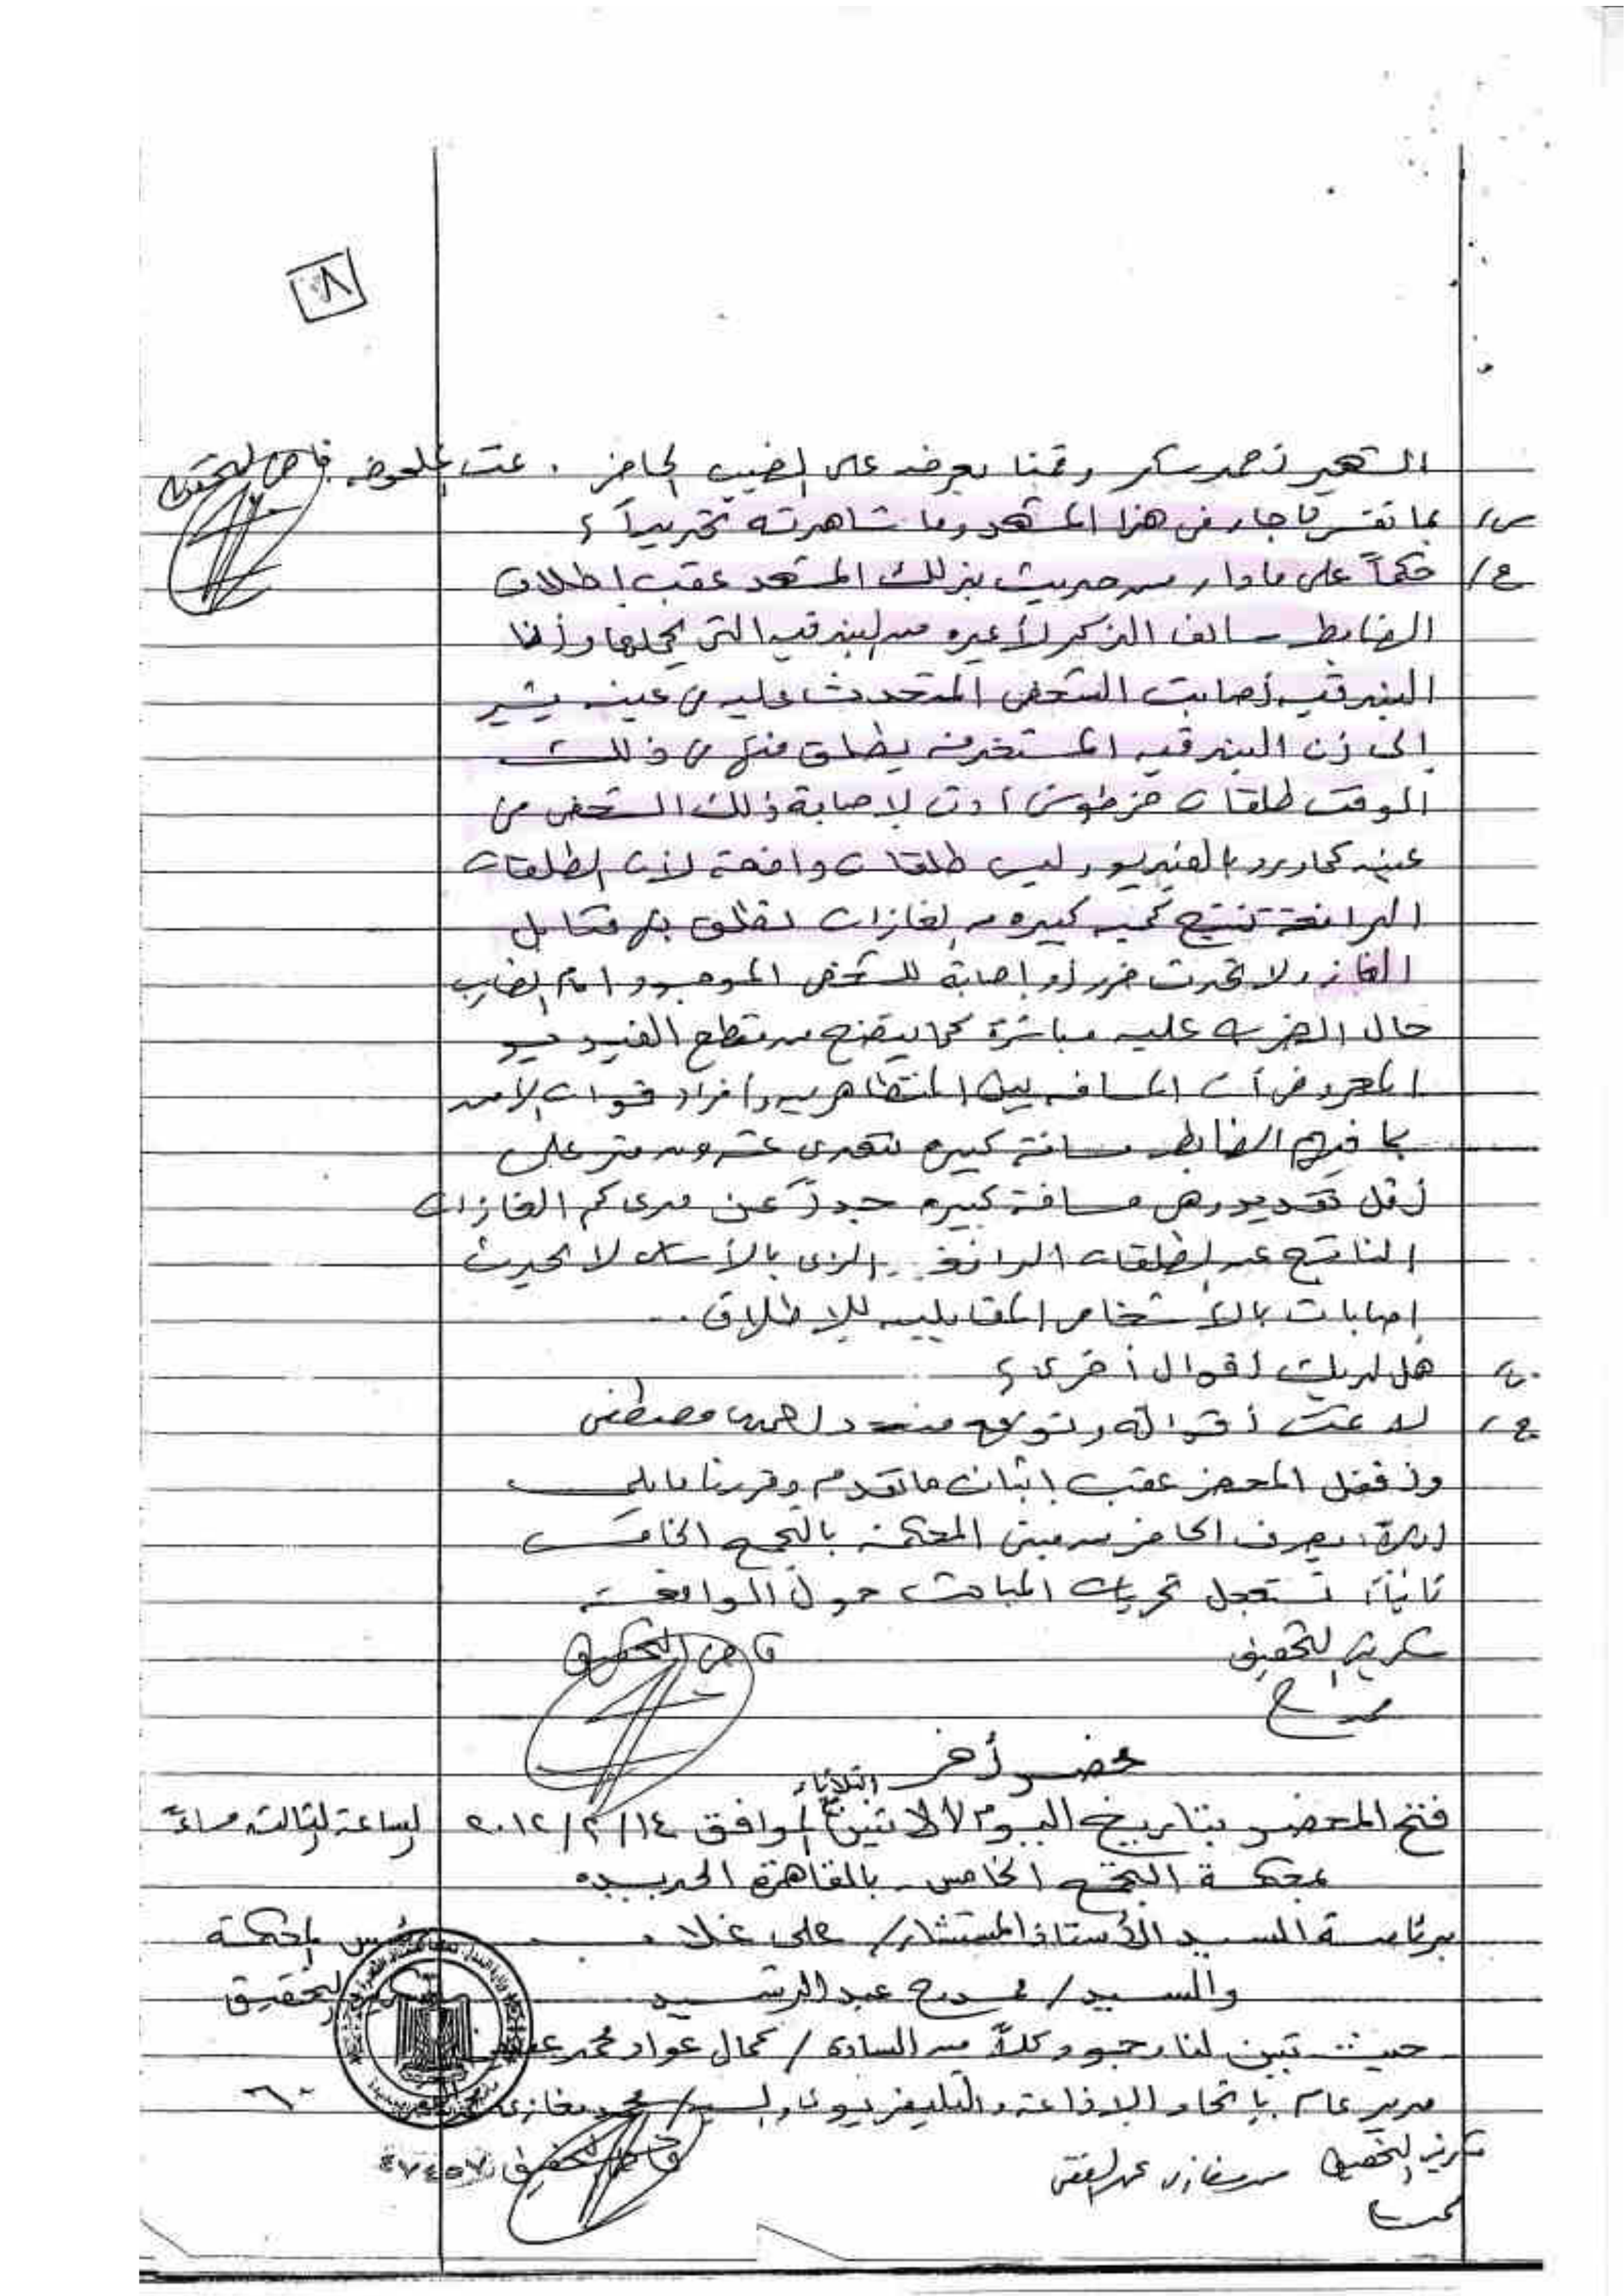 ٨
الشهير أحمد سكر وقمنا بعرضه على الضيب الحاضر . تمت الملحوظة قاضى التحقيق
س/ بما تفسر ما جاء فى هذا المشهد وما شاهدته تحديداً ؟
ج/ حكماً على ما دار من حديث بذلك المشهد عقب إطلاق
الضابط سالف الذكر لأعيره من البندقيه التى يحملها وأنها
البندقيه أصابت الشخص المتحدث عليه فى عينه يشير
إلى أن البندقيه المستخدمه يطلق منها فى ذلك
الوقت طلقات خرطوش أدت لإصابة ذلك الشخص من
عينه كما ورد بالفيديو وليس طلقات دافعة لأن الطلقات
الدافعة تنتج كميه كبيره من الغازات تطلق بها قنابل
الغاز ولا تحدث ضرر أو إصابة للشخص الموجود امام الضارب
حال الضرب عليه مباشرة كما يتضح من مقطع الفيديو
المعروض أن المسافه بين المتظاهرين وأفراد قوات الأمن
بما فيهم الضابط مسافة كبيره تتعدى عشرون متر على
أقل تقدير وهى مسافة كبيره جداً عن مدى كم الغازات
الناتج عن الطلقات الدافعة الذى بالأساس لا يحدث
إصابات بالأشخاص المقابلين للإطلاق ..
س/ هل لديك أقوال أخرى ؟
ج/ لا تمت أقواله وتوقع منه د أحمد مصطفى
وأقفل المحضر عقب إثبات ما تقدم وقررنا ما يلى
أولاً: يصرف الحاضر من مبنى المحكمة بالتجمع الخامس
ثانياً: تستعجل تحريات المباحث حول الواقعة
سكرتير التحقيق قاضى التحقيق
محضر أخر
الثلاثاء
فتح المحضر بتاريخ اليوم الاثنين الموافق ١٤/٢/٢٠١٢ الساعة الثالثة مساءً
بمحكمة التجمع الخامس - بالقاهرة الجديده
برئاسة السيد الأستاذ المستشار/ على غلاب رئيس المحكمة
والسيد/ ممدوح عبد الرشيد سكرتير التحقيق
حيث تبين لنا وجود كلاً من السادة / كمال عواد محمد
مدير عام باتحاد الإذاعة والتليفزيون والسيد/ محمد مغازى
سكرتير التحقيق محمد مغازى محمد الفقى قاضى التحقيق ٤٧٤٥٧